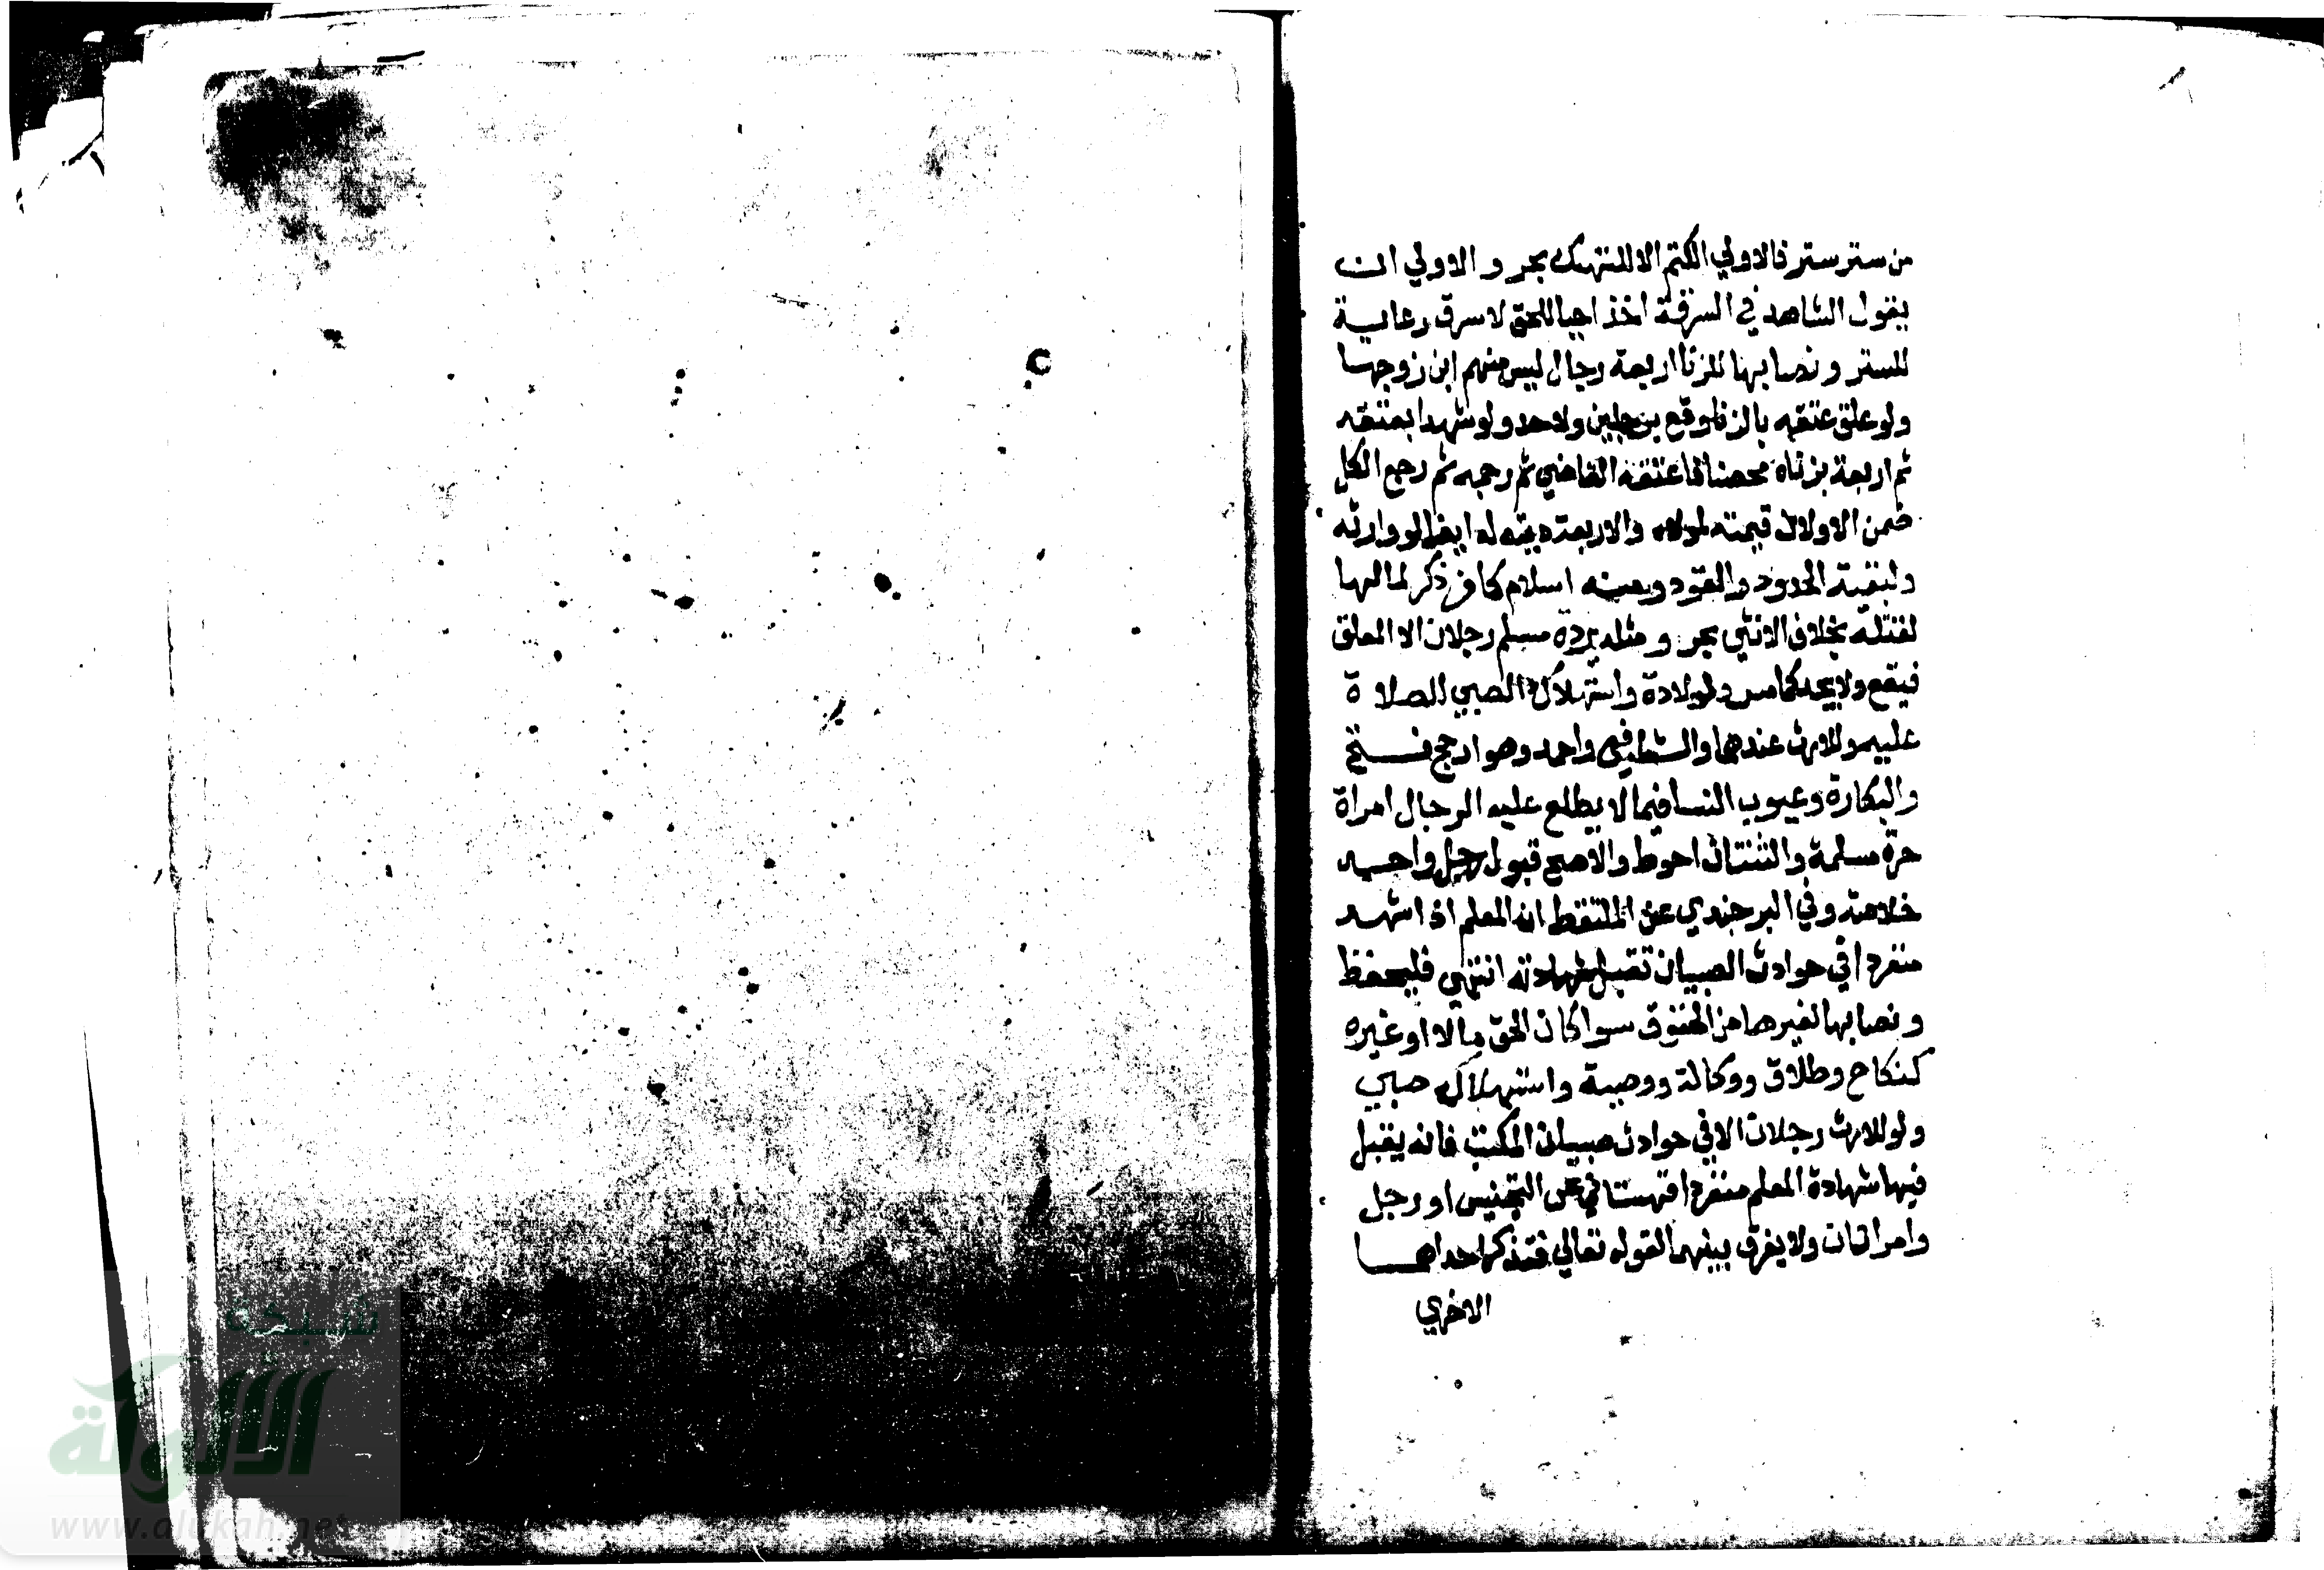 من ستر ستر فالاولي الكتم الا لمنتهك بحر والاولي ان
يقول الشاهد في السرقة اخذ احيا للحق لا سرق رعاية
للستر ونصابها للزنا اربعة رجال ليس منهم ابن زوجها
ولو علق عتقه بالزنا وقع برجلين ولا حد ولو شهدا بعتقه
ثم اربعة بزناه محصنا فاعتقه القاضي ثم رجمه ثم رجع الكل
ضمن الاولان قيمته لمولاه والاربعة ديته له ايضا لو وارثه
ولبقية الحدود والقود ومنه اسلام كافر ذكر لمالها
لقتله بخلاف الانثي بحر ومثله ردة مسلم رجلان الا المعلق
فيقع ولا يحد كما مر وللولادة واستهلال الصبي للصلاة
عليه وللارث عندهما والشافعي واحمد وهو ارجح فتح
والبكارة وعيوب النسا فيما لا يطلع عليه الرجال امراة
حرة مسلمة والثنتان احوط والاصح قبول رجل واحد
خلاصة وفي البرجندي عن الملتقط ان المعلم اذا شهد
منفردا في حوادث الصبيان تقبل شهادته انتهي فليحفظ
ونصابها لغيرها من الحقوق سوا كان الحق مالا او غيره
كنكاح وطلاق ووكالة ووصية واستهلال صبي
ولو للارث رجلان الا في حوادث صبيان المكتب فانه يقبل
فيها شهادة المعلم منفردا قهستاني عن التجنيس او رجل
وامراتان ولا يفرق بينهما لقوله تعالي فتذكر احداهما
الاخري
شبكة
الألوكة
www.alukah.net